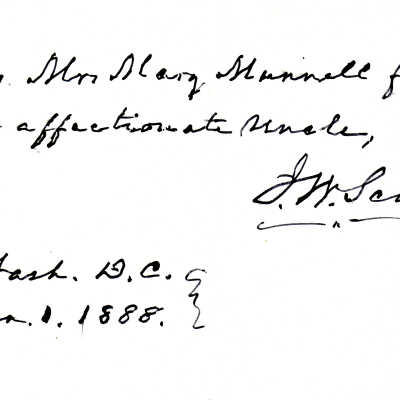 Mrs Mary Munnell
affectionate Uncle,
J. W. Sc
ash. D. C.
n. 1. 1888.